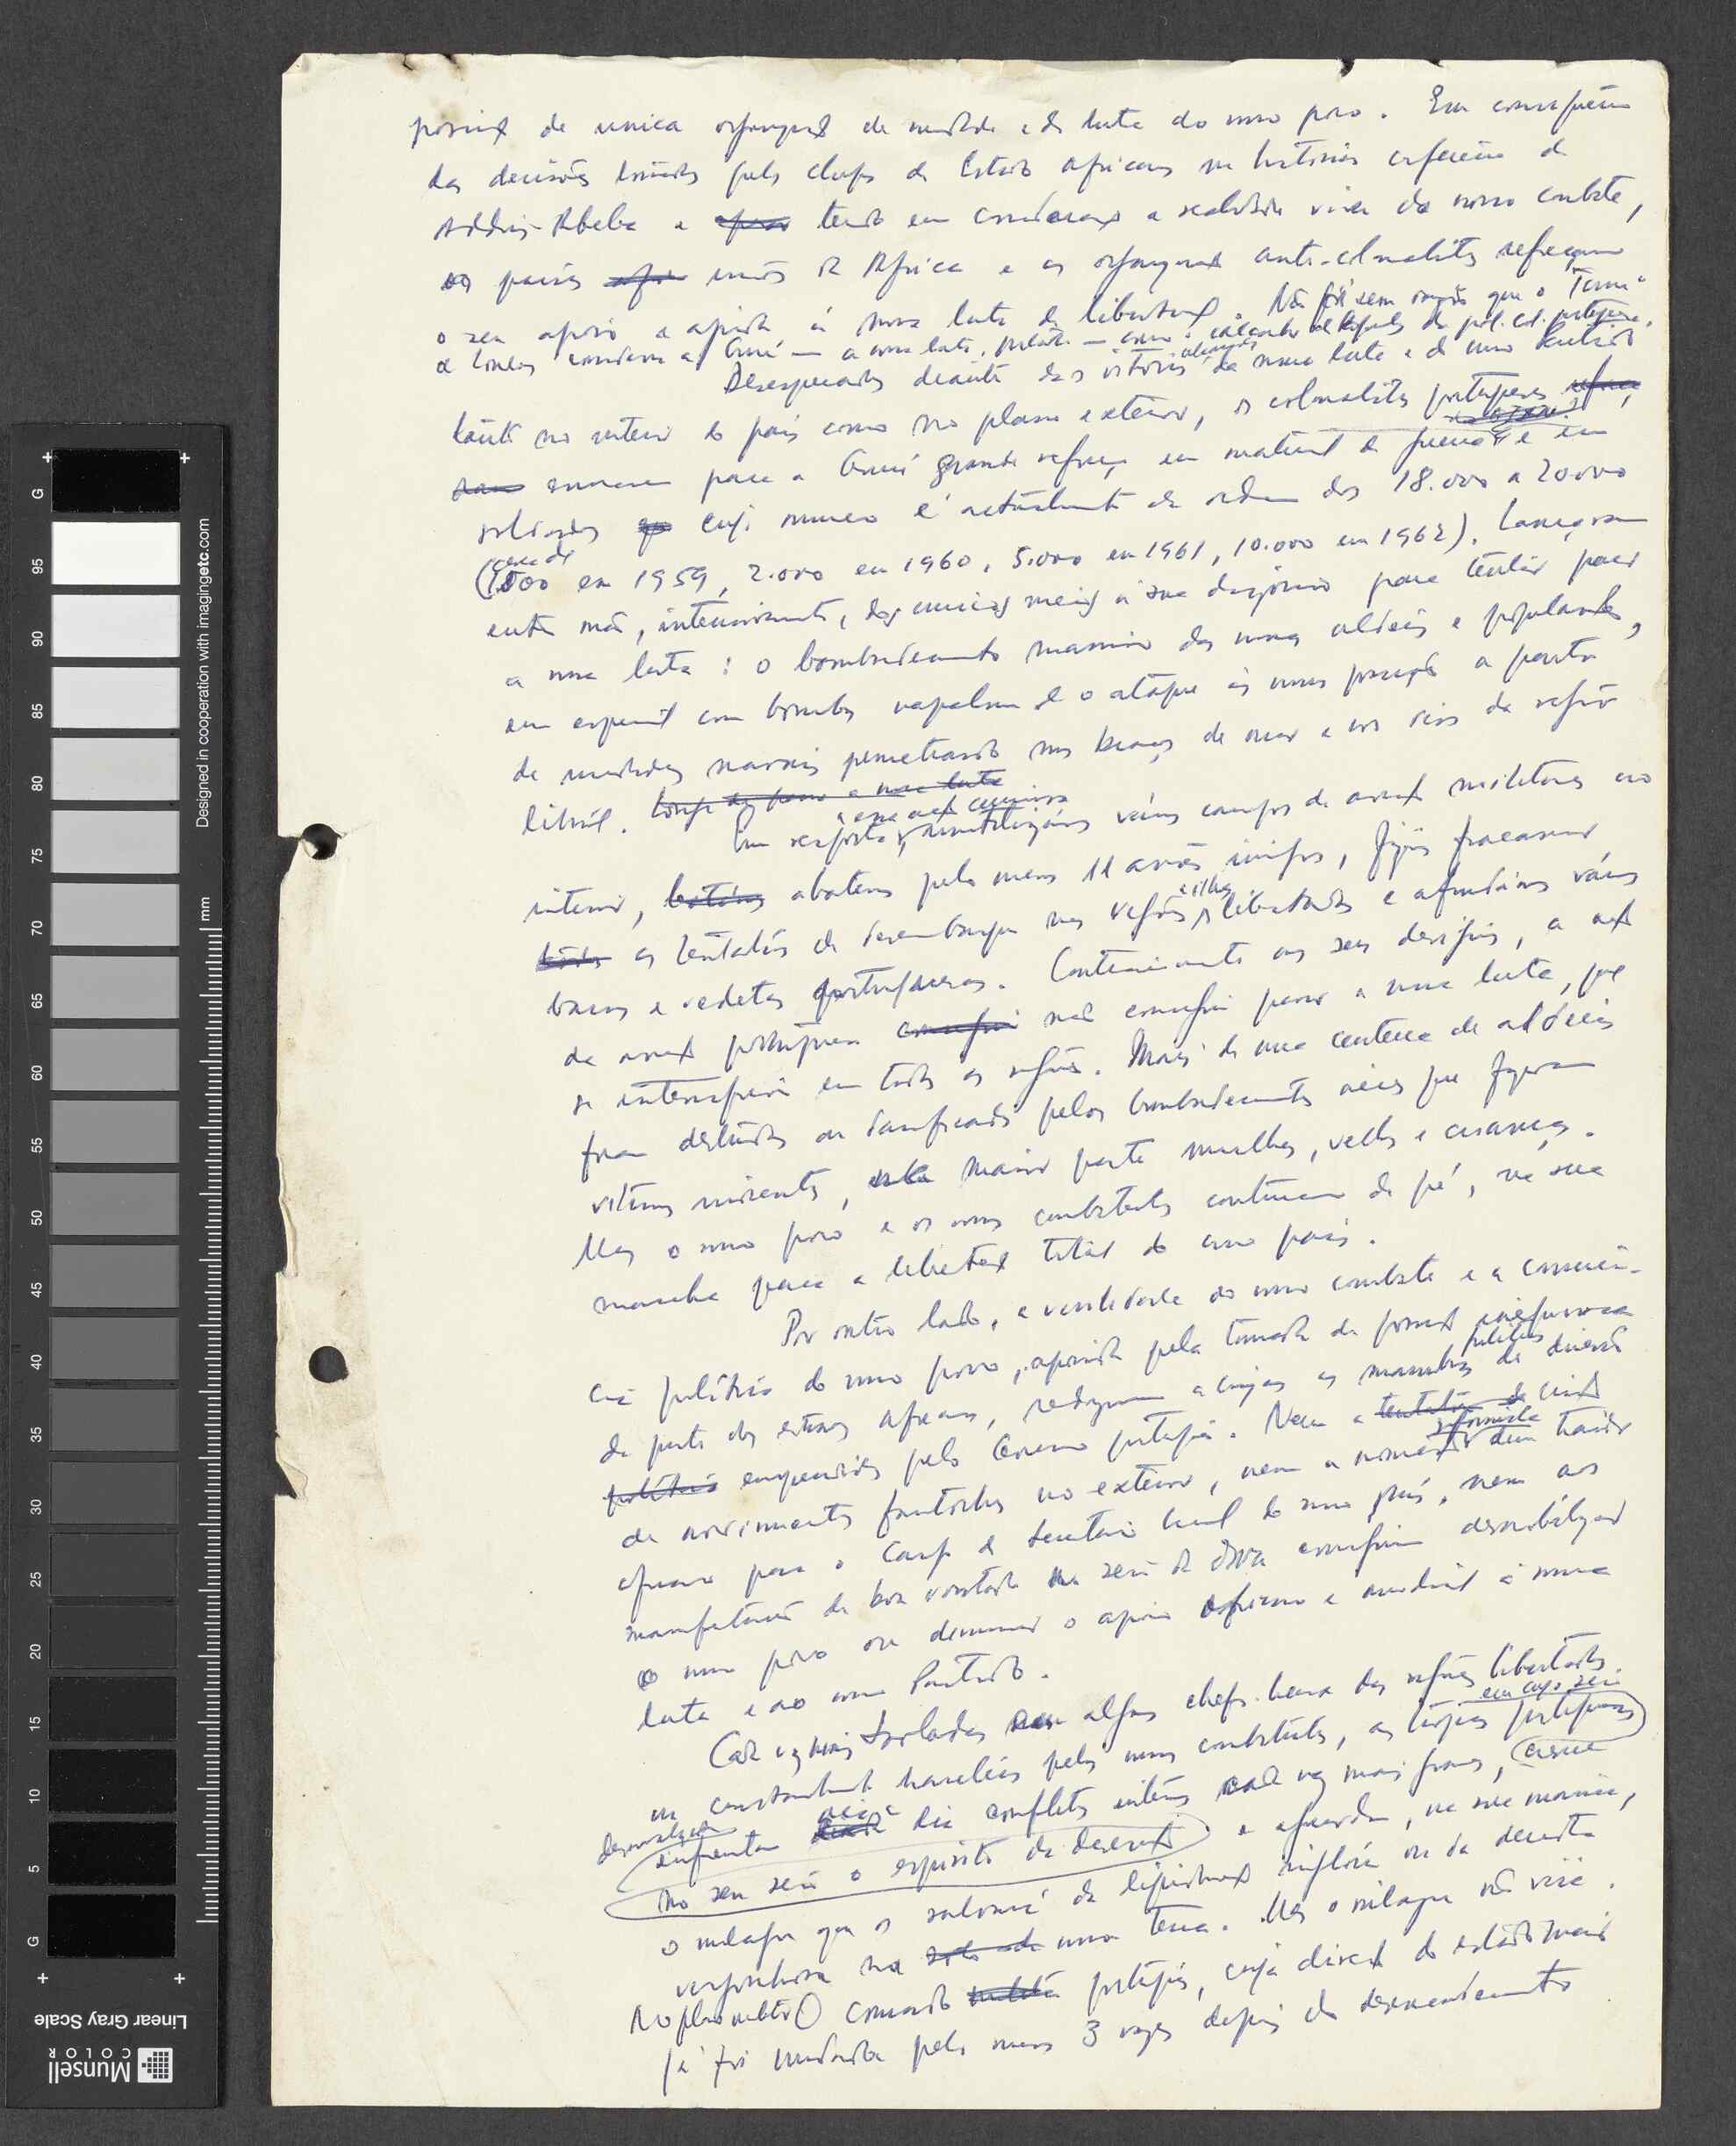 posição de unica organização de unidade e de luta do nosso povo. Em consequência
das decisões tomadas pelos chefes de Estado africanos na histórica conferência de
Addis-Abeba e tendo em consideração a realidade viva do nosso combate,
os países irmãos de Africa e as organizações anti-colonialistas reforçaram
o seu apoio e ajuda à nossa luta de libertação. Não foi sem razão que o "Times"
de Londres considerou a Guiné — a nossa luta, portanto — como o calcanhar de Aquiles da pol. col. portuguesa.
Desesperados diante das vitórias alcançadas da nossa luta e do nosso Partido
tanto no interior do país como no plano exterior, os colonialistas portugueses
enviaram para a Guiné grandes reforços em material de guerra e em
soldados cujo numero é actualmente da ordem dos 18.000 a 20000
(cerca de 1000 em 1959, 2.000 em 1960, 5.000 em 1961, 10.000 em 1962). Lançaram
então mão, intensivamente, dos unicos meios à sua disposição para tentar parar
a nossa luta: o bombardeamento massivo das nossas aldeias e populações,
em especial com bombas napalm e o ataque às nossas posições a partir
de unidades navais penetrando nos braços de mar e nos rios da região
litoral. Longe de parar a nossa luta
Em resposta a essa acção criminosa, inutilizámos vários campos de aviação militares no
interior, abatemos pelo menos 11 aviões inimigos, fizemos fracassar
as tentativas de desembarque nas regiões e ilhas libertadas e afundámos vários
barcos e vedetas portuguesas. Contrariamente aos seus desígnios, a acção
da aviação portuguesa não conseguiu parar a nossa luta, que
se intensificou em todas as regiões. Mais de uma centena de aldeias
foram destruidas ou danificadas pelos bombardeamentos aéreos que fizeram
vitimas inocentes, na maior parte mulheres, velhos e crianças.
Mas o nosso povo e os nossos combatentes continuam de pé, na sua
marcha para a libertação total do nosso país.
Por outro lado, a realidade do nosso combate e a consciên-
cia politica do nosso povo, apoiada pela tomada de posição inequivoca
da parte dos estados africanos, reduziram a cinzas as manobras politicas de diversão
empreendidas pelo Governo português. Nem a criação
de movimentos fantoches no exterior, nem a nomeação dum traidor
africano para o cargo de Secretário Geral do nosso país, nem as
manifestações de boa vontade no seio da ONU conseguiram desmobilizar
o nosso povo ou diminuir o apoio africano e mundial à nossa
luta e ao nosso Partido.
Cada vez mais isoladas em alguns chefs-lieux das regiões libertadas
ou constantemente hostilizadas pelos nossos combatentes, as tropas portuguesas em cujo seio
enfrentam dia a dia conflitos internos cada vez mais graves, cresce
no seu seio o espirito de deserção e aguardam, na sua maioria,
o milagre que os salvará da liquidação inglória ou da derrota
vergonhosa na nossa terra. Mas o milagre não virá.
No plano militar O comando português, cuja direcção do estado maior
já foi mudada pelo menos 3 vezes depois do desencadeamento